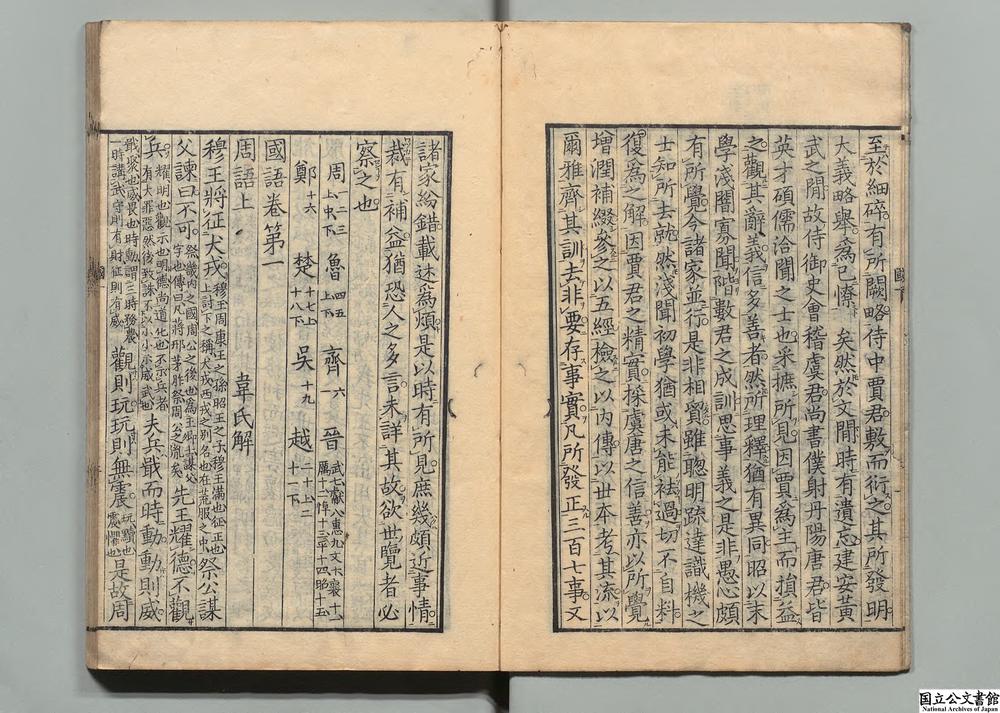 至於細碎有所闕略待中賈君敷而衍之其所發明
大義略舉爲已憭矣然於文間時有遺忘建安黃
武之間故侍御史會稽虞君尚書僕射丹陽唐君皆
英才碩儒洽聞之士也采摭所見因賈爲主而損益
之觀其辭義信多善者然所理釋猶有異同昭以末
學淺闇寡聞階數君之成訓思事義之是非愚心頗
有所覺今諸家並行是非相貿雖聰明疏達識機之
士知所去就然淺聞初學猶或未能袪過切不自料
復爲之解因賈君之精實採虞唐之信善亦以所覺
增潤補綴參之以五經檢之以内傳以世本考其流以
爾雅齊其訓去非要存事實凡所發正三百七事又
諸家紛錯載述爲煩是以時有所見庶幾頗近事情
裁有補益猶恐人之多言未詳其故欲世覽者必
察之也
周 一二三上中下 魯 四五上下 齊 六 晉 武七獻八惠九文十襄十一厲十二悼十三平十四昭十五
鄭 十六 楚 十七上十八下 吳 十九 越 二十上二十一下
國語卷第一
周語上 韋氏解
穆王將征犬戎 穆王周康王之孫昭王之子穆王滿也征正也上討下之稱犬戎西戎之别名也在荒服之中 祭公謀
父諫曰不可 祭畿内之國周公之後也爲王卿士謀父字也傳曰凡蔣邢茅胙祭周公之胤矣 先王耀德不觀
兵 耀明也觀示也明德尚道化也不示兵者有大罪惡然後致誅不以小小示威武也 夫兵戢而時動動則威
戢聚也威畏也時動謂三時務農一時講武守則有財征則有威 觀則玩玩則無震 玩黷也震懼也 是故周
國立公文書館
National Archives of Japan